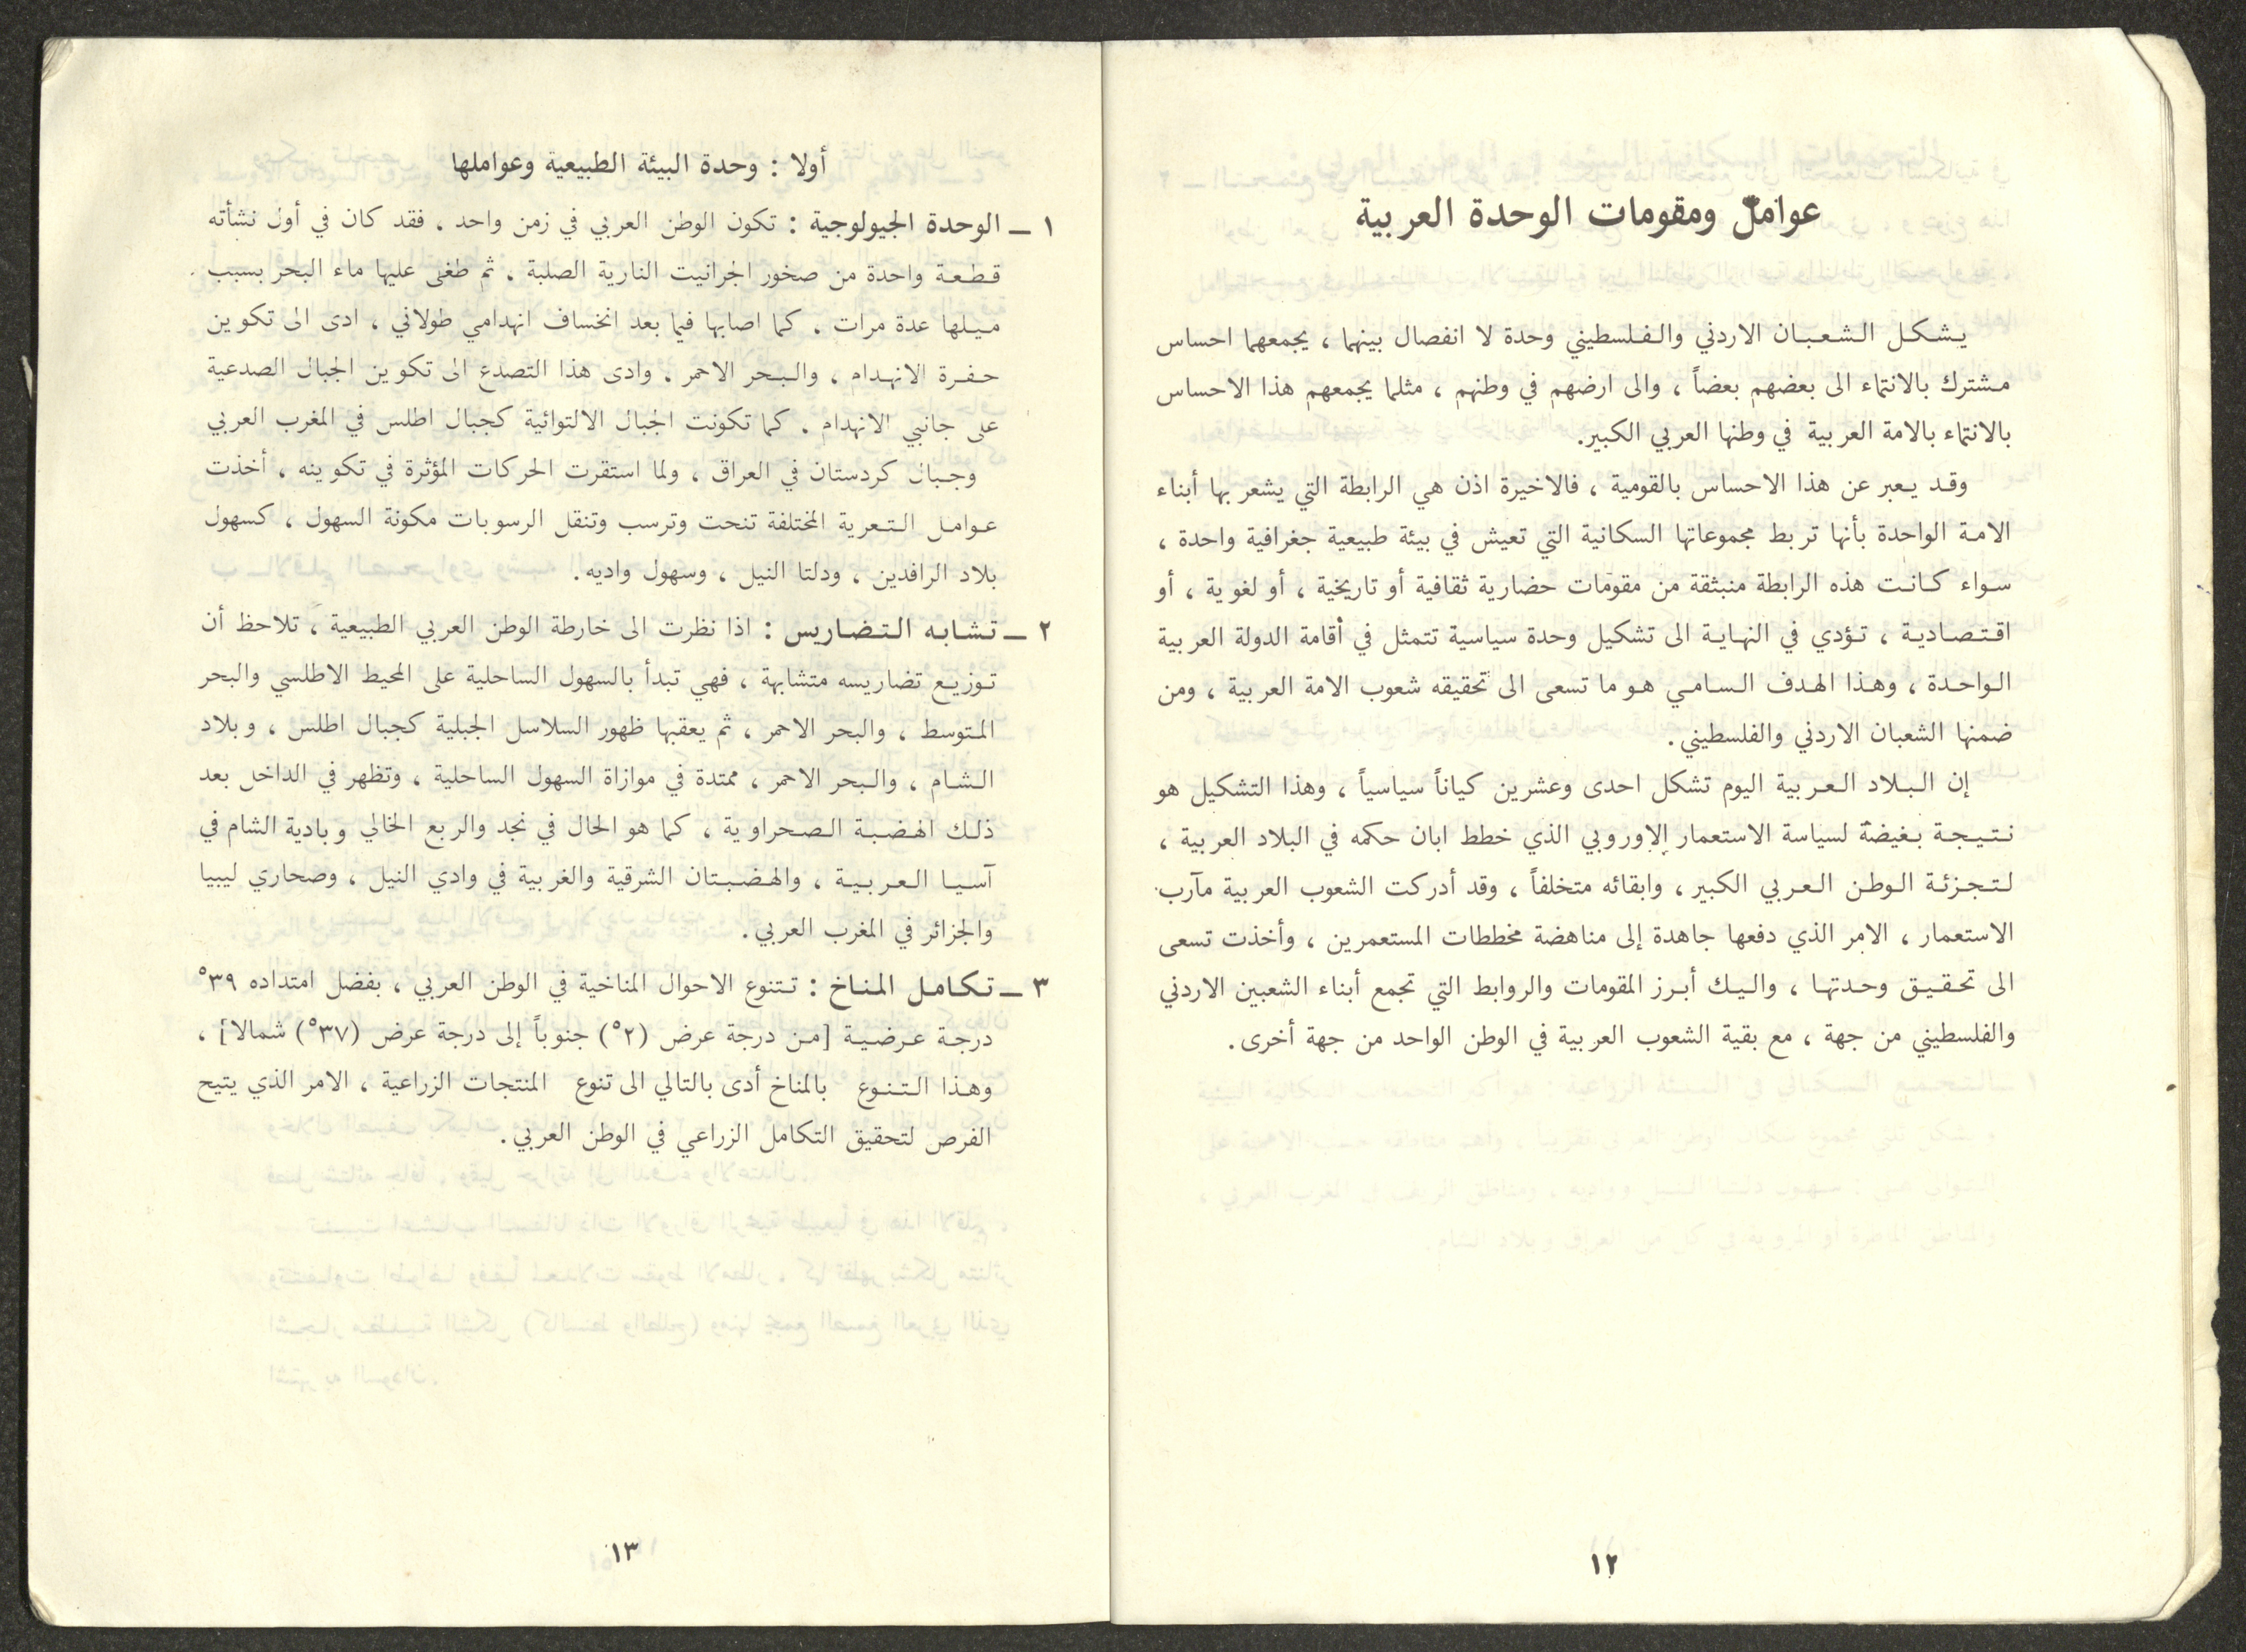 عوامل ومقومات الوحدة العربية
يشكل الشعبان الاردني والفلسطيني وحدة لا انفصال بينهما ، يجمعهما احساس
مشترك بالانتماء الى بعضهم بعضاً ، والى ارضهم في وطنهم ، مثلما يجمعهم هذا الاحساس
بالانتماء بالامة العربية في وطنها العربي الكبير.
وقد يعبر عن هذا الاحساس بالقومية ، فالاخيرة اذن هي الرابطة التي يشعر بها أبناء
الامة الواحدة بأنها تربط مجموعاتها السكانية التي تعيش في بيئة طبيعية جغرافية واحدة ،
سواء كانت هذه الرابطة منبثقة من مقومات حضارية ثقافية أو تاريخية ، أو لغوية ، أو
اقتصادية ، تؤدي في النهاية الى تشكيل وحدة سياسية تتمثل في أقامة الدولة العربية
الواحدة ، وهذا الهدف السامي هو ما تسعى الى تحقيقه شعوب الامة العربية ، ومن
ضمنها الشعبان الاردني والفلسطيني .
إن البلاد العربية اليوم تشكل احدى وعشرين كياناً سياسياً ، وهذا التشكيل هو
نتيجة بغيضة لسياسة الاستعمار الاوروبي الذي خطط ابان حكمه في البلاد العربية ،
لتجزئة الوطن العربي الكبير ، وابقائه متخلفاً ، وقد أدركت الشعوب العربية مآرب
الاستعمار ، الامر الذي دفعها جاهدة إلى مناهضة مخططات المستعمرين ، وأخذت تسعى
الى تحقيق وحدتها ، واليك أبرز المقومات والروابط التي تجمع أبناء الشعبين الاردني
والفلسطيني من جهة ، مع بقية الشعوب العربية في الوطن الواحد من جهة أخرى .
١٢
أولا : وحدة البيئة الطبيعية وعواملها
١ ــ الوحدة الجيولوجية : تكون الوطن العربي في زمن واحد . فقد كان في أول نشأته
قطعة واحدة من صخور الجرانيت النارية الصلبة . ثم طغى عليها ماء البحر بسبب
ميلها عدة مرات . كما اصابها فيما بعد انخساف انهدامي طولاني ، ادى الى تكوين
حفرة الانهدام ، والبحر الاحمر . وادى هذا التصدع الى تكوين الجبال الصدعية
على جانبي الانهدام . كما تكونت الجبال الالتوائية كجبال اطلس في المغرب العربي
وجبال كردستان في العراق ، ولما استقرت الحركات المؤثرة في تكوينه ، أخذت
عوامل التعرية المختلفة تنحت وترسب وتنقل الرسوبات مكونة السهول ، كسهول
بلاد الرافدين ، ودلتا النيل ، وسهول واديه .
٢ ــ تشابه التضاريس : اذا نظرت الى خارطة الوطن العربي الطبيعية ، تلاحظ أن
توزيع تضاريسه متشابهة ، فهي تبدأ بالسهول الساحلية على المحيط الاطلسي والبحر
المتوسط ، والبحر الاحمر ، ثم يعقبها ظهور السلاسل الجبلية كجبال اطلس ، وبلاد
الشام ، والبحر الاحمر ، ممتدة في موازاة السهول الساحلية ، وتظهر في الداخل بعد
ذلك الهضبة الصحراوية ، كما هو الحال في نجد والربع الخالي وبادية الشام في
آسيا العربية ، والهضبتان الشرقية والغربية في وادي النيل ، وصحاري ليبيا
والجزائر في المغرب العربي .
٣ ــ تكامل المناخ : تتنوع الاحوال المناخية في الوطن العربي ، بفضل امتداده ٣٩°
درجة عرضية [من درجة عرض (٢°) جنوباً إلى درجة عرض (٣٧°) شمالا] ،
وهذا التنوع بالمناخ أدى بالتالي الى تنوع المنتجات الزراعية ، الامر الذي يتيح
الفرص لتحقيق التكامل الزراعي في الوطن العربي .
١٣